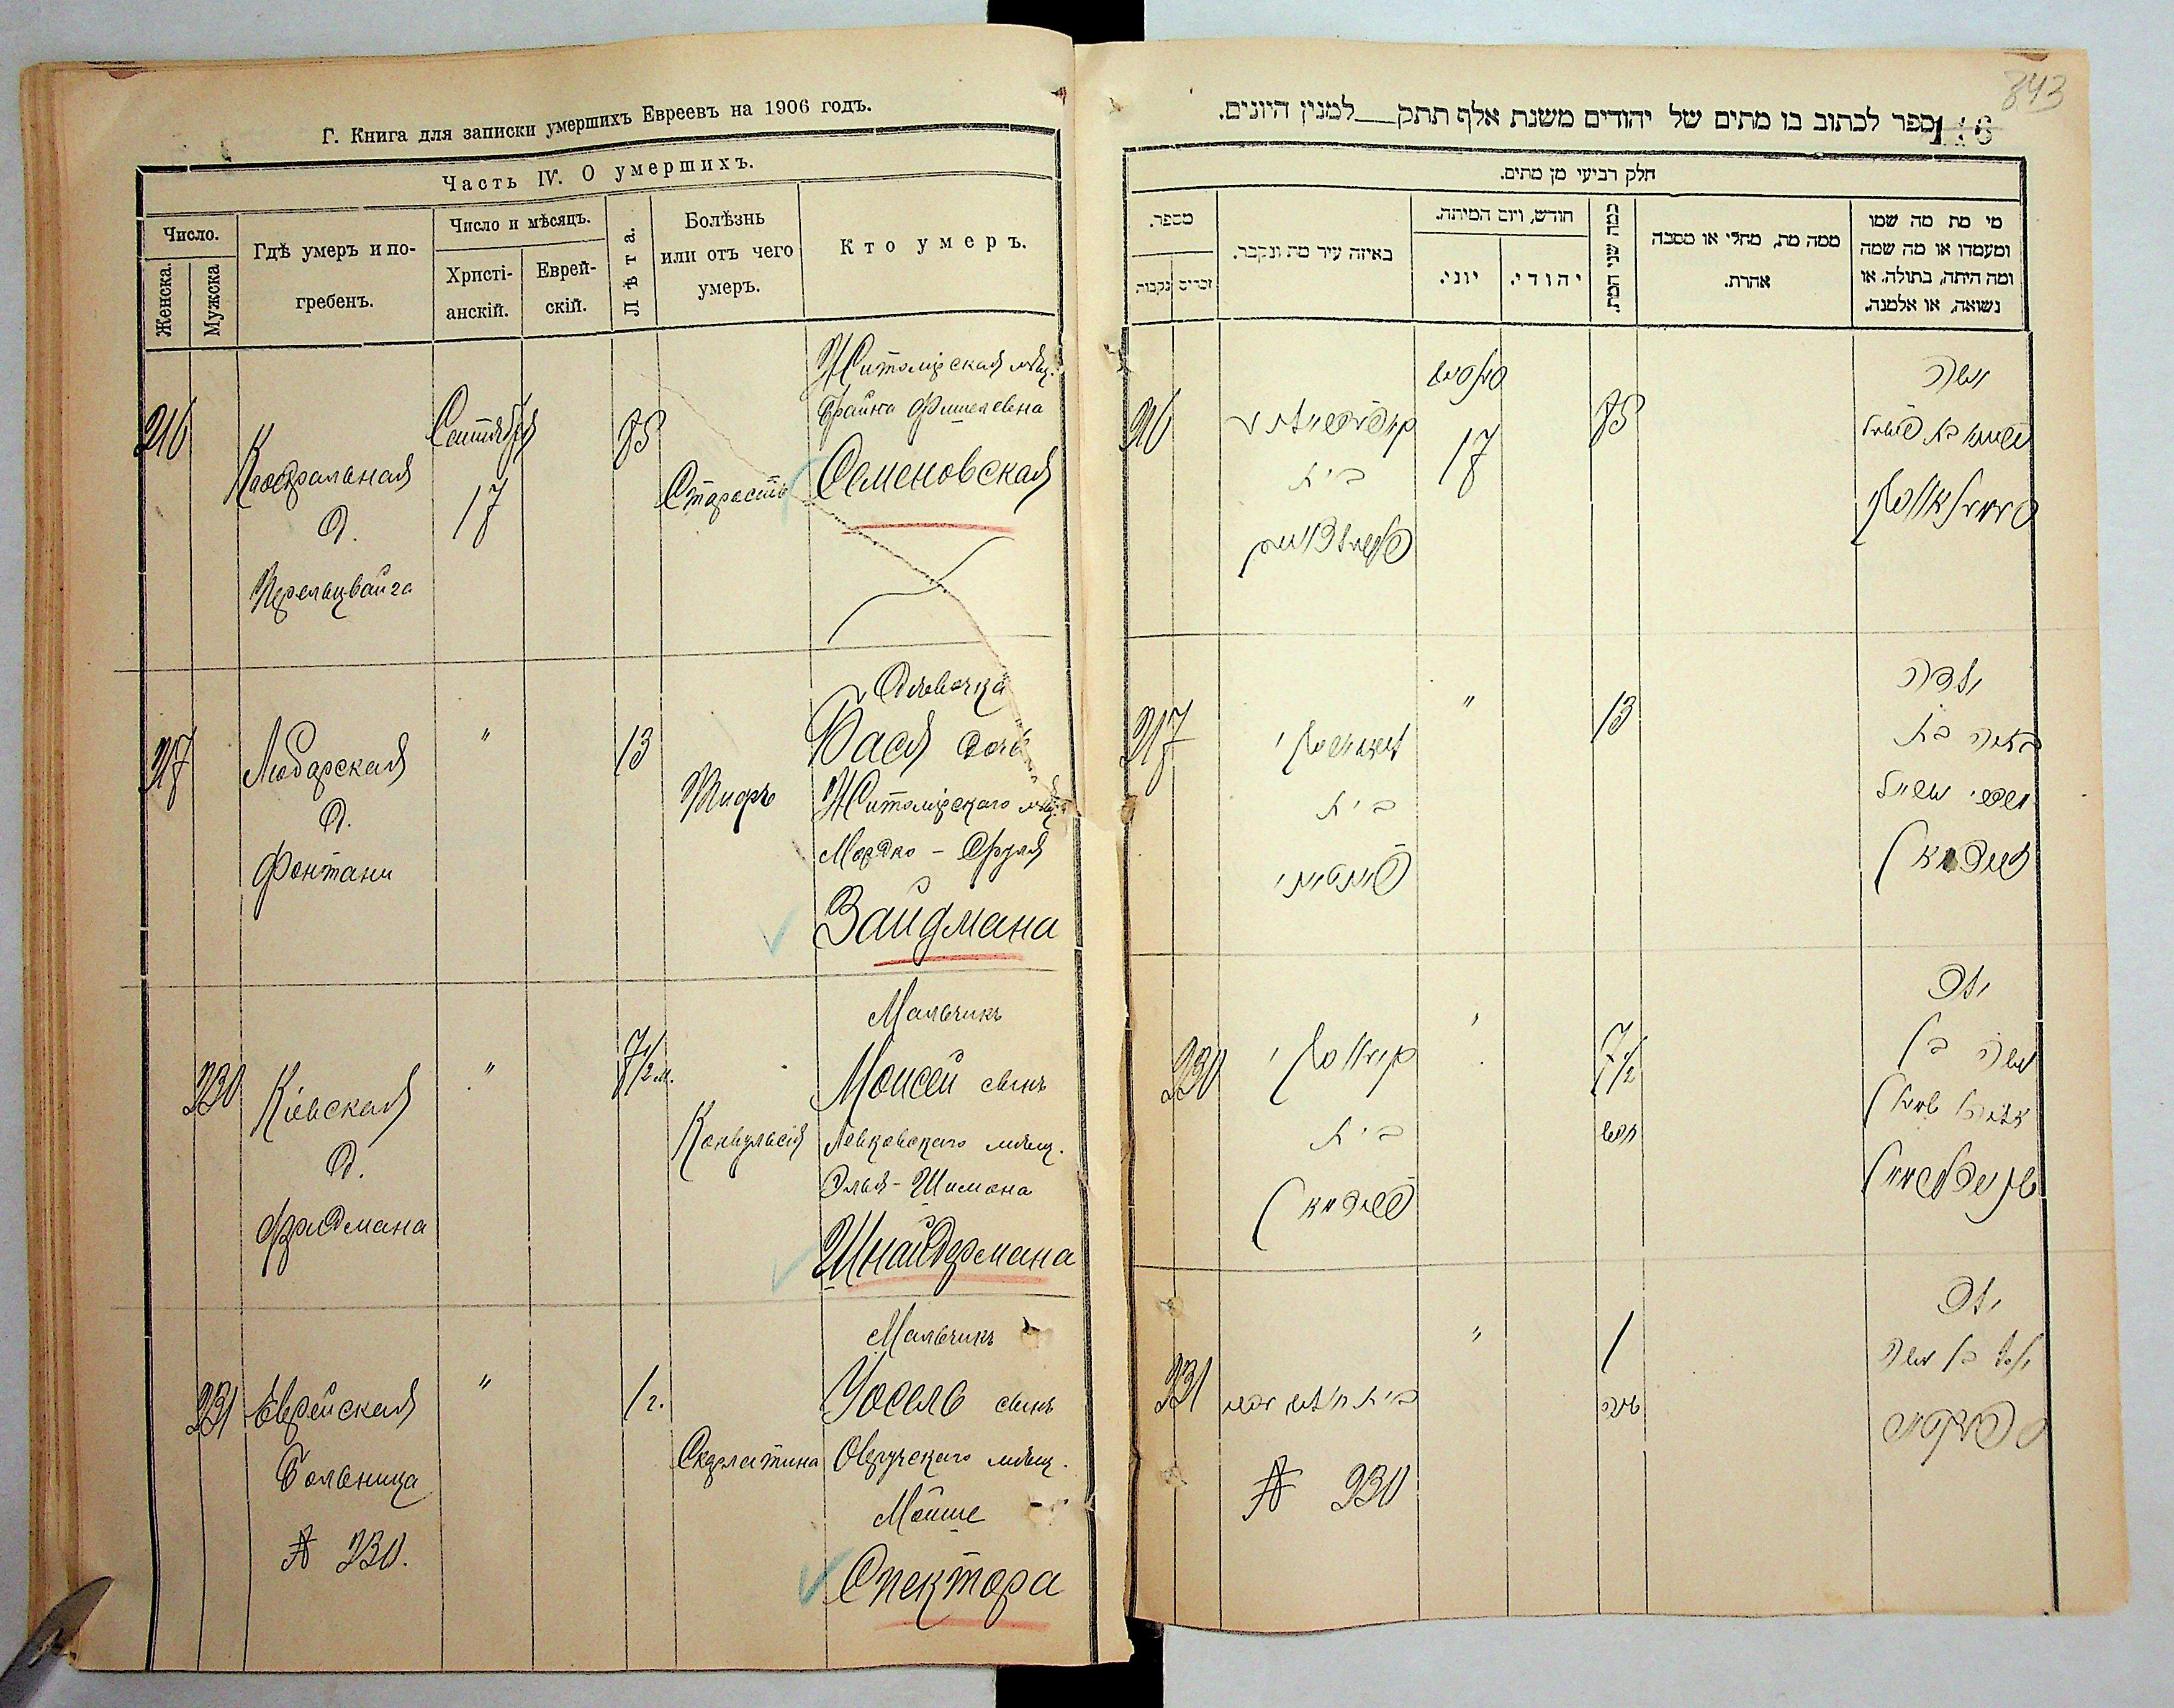 Г. Книга для записки умершихъ Евреевъ на 1906 годъ.
Часть IV. О умершихъ.
Число.
Женска.
Мужска
Гдѣ умеръ и по-
гребенъ.
Число и мѣсяцъ.
Христі-
анскій.
Еврей-
скій.
Лѣта.
Болѣзнь
или отъ чего
умеръ.
Кто умеръ.
216
Каѳедральная
д.
Перельцвайга
Сентября
17
85
Старость
Житомірская мѣщ.
Фрайна Фишелевна
Семеновская
217
Любарская
д.
Фонтани
"
13
Тифъ
Дѣвочка
Бася дочь
Житомірскаго мѣщ.
Мордко-Сруля
Зайдмана
230
Кіевская
д.
Фридмана
"
7 1/2 м.
Конвульсія
Мальчикъ
Моисей сынъ
Левковскаго мѣщ.
Элья-Шимона
Шнайдермана
231
Еврейская
больница
№ 230.
"
1 г.
Скарлатина
Мальчикъ
Іосель сынъ
Овручскаго мѣщ.
Мойше
Спектора
843
ספר לכתוב בו מתים של יהודים משנת אלף תתק למנין היונים.
חלק רביעי מן מתים.
מספר.
נקבות
זכרים
באיזה עיר מת ונקבר.
חודש, ויום המיתה.
יוני.
יהודי.
כמה שני המת.
ממה מת, מחלי או מסבה
אחרת.
מי מת מה שמו
ומעמדו או מה שמה
ומה היתה, בתולה, או
נשואה, או אלמנה.
216
בית
17
85
אשה
217
בית
"
13
ילדה
230
בית
פרידמאן
"
7 1/2
חדש
ילד
משה בן
שניידערמאן
231
№ 230
"
1
שנה
ילד
יוסל בן משה
ספעקטאר